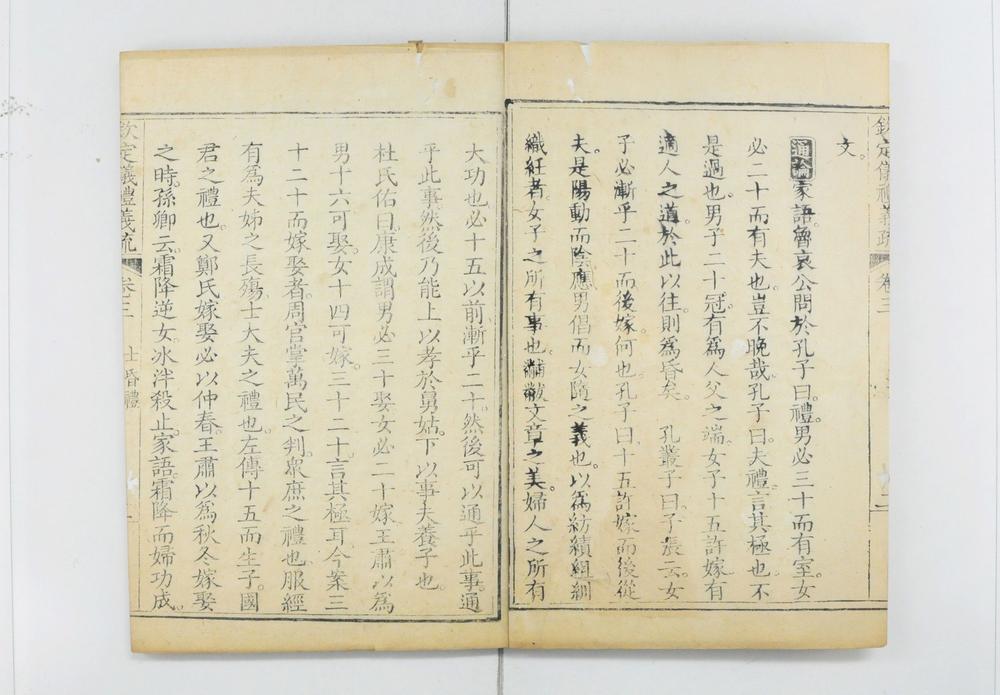 欽定儀禮義疏 卷三 二
文。
通論家語魯哀公問於孔子曰。禮男必三十而有室女
必二十而有夫也。豈不晚哉。孔子曰。夫禮。言其極也。不
是過也。男子二十冠。有爲人父之端。女子十五許嫁有
適人之道。於此以往。則爲昏矣。 孔叢子曰。子張云女
子必漸乎二十而後嫁。何也。孔子曰。十五許嫁而後從
夫。是陽動而陰應男倡而女隨之義也。以爲紡績組紃
織紝者。女子之所有事也。黼黻文章之美。婦人之所有
大功也。必十五以前漸乎二十。然後可以通乎此事。通
乎此事。然後乃能上以孝於舅姑。下以事夫養子也。
杜氏佑曰。康成謂男必三十娶女必二十嫁。王肅以爲
男十六可娶。女十四可嫁。三十二十。言其極耳。今案三
十二十而嫁娶者。周官掌萬民之判。衆庶之禮也。服經
有爲夫姊之長殤。士大夫之禮也。左傳十五而生子。國
君之禮也。又鄭氏嫁娶必以仲春。王肅以爲秋冬嫁娶
之時。孫卿云。霜降逆女。冰泮殺止。家語。霜降而婦功成。
欽定儀禮義疏 卷三 士昏禮